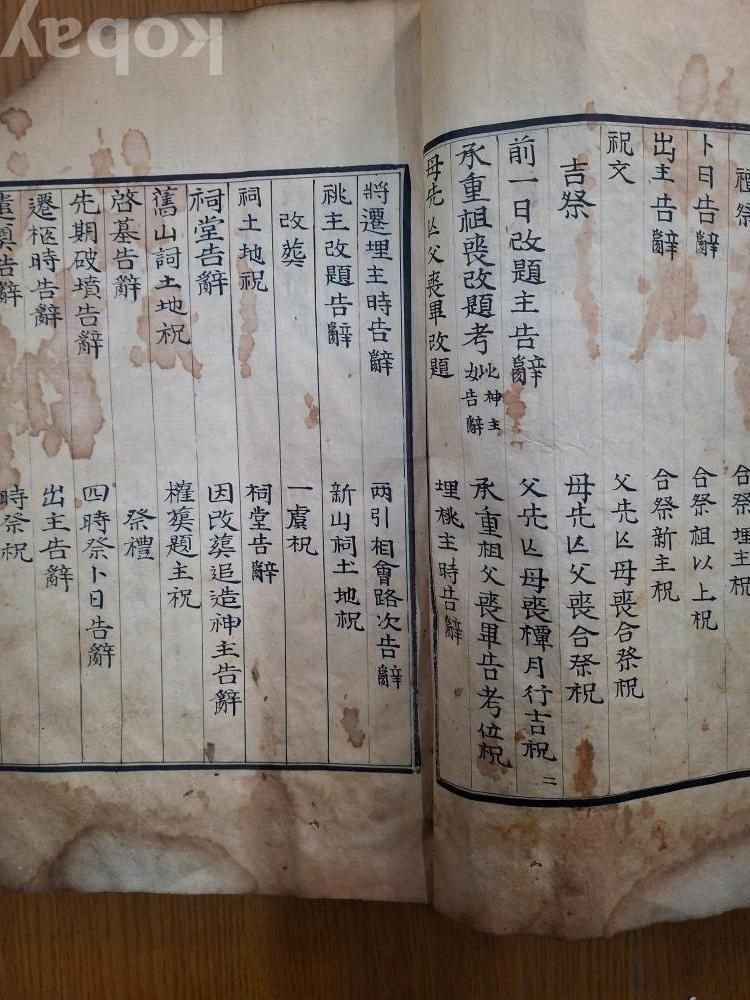 kobay
禫祭 合祭埋主祝
卜日告辭 合祭祖以上祝
出主告辭 合祭新主祝
祝文 父先亾母喪合祭祝
吉祭 母先亾父喪合祭祝
前一日改題主告辭 父先亾母喪禫月行吉祝 二
承重祖喪改題考妣神主告辭 承重祖父喪畢告考位祝
母先亾父喪畢改題 埋祧主時告辭
將遷埋主時告辭 兩引相會路次告辭
祧主改題告辭 新山祠土地祝
改葬 一虞祝
祠土地祝 祠堂告辭
祠堂告辭 因改葬追造神主告辭
舊山詞土地祝 權葬題主祝
啓墓告辭 祭禮
先期破墳告辭 四時祭卜日告辭
遷柩時告辭 出主告辭
遣奠告辭 時祭祝